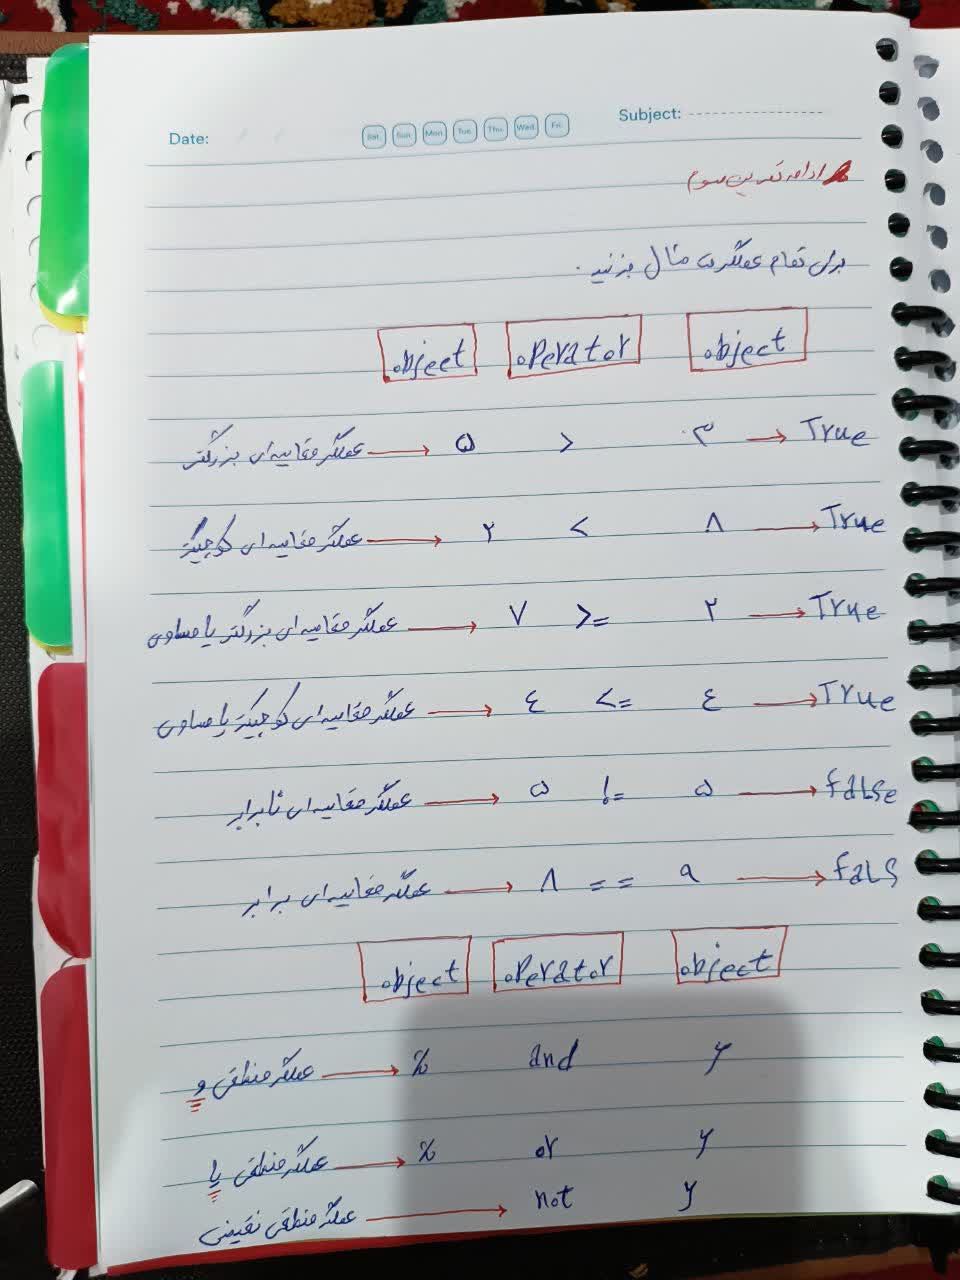 Date: Sat. Sun. Mon. Tue. Thu. Wed. Fri. Subject:
ادامه تمرین سوم
برای تمام عملگرها مثال بزنید.
object operator object
عملگر مقایسه‌ای بزرگتر → ۵ > ۳ → True
عملگر مقایسه‌ای کوچیکتر → ۲ < ۸ → True
عملگر مقایسه‌ای بزرگتر یا مساوی → ۷ >= ۲ → True
عملگر مقایسه‌ای کوچیکتر یا مساوی → ٤ <= ٤ → True
عملگر مقایسه‌ای نابرابر → ۵ != ۵ → false
عملگر مقایسه‌ای برابر → ۸ == ۹ → fals
object operator object
عملگر منطقی و → x and y
عملگر منطقی یا → x or y
عملگر منطقی نقیض → not y